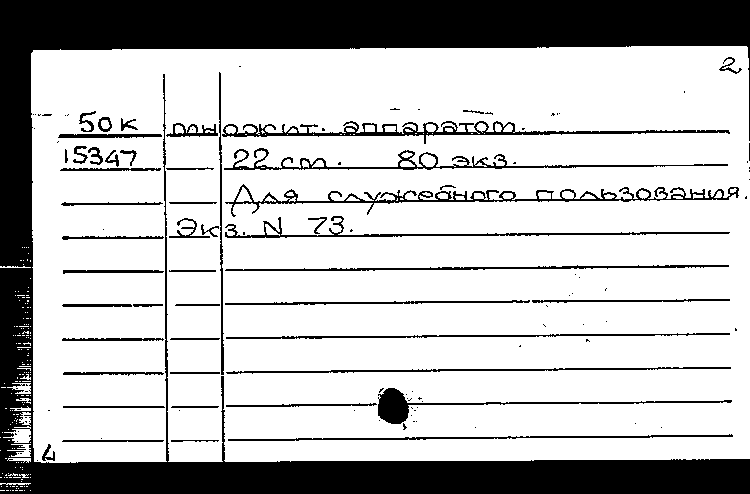 2
50к множит. аппаратом.
15347 22 см. 80 экз.
Для служебного пользования.
Экз. N 73.